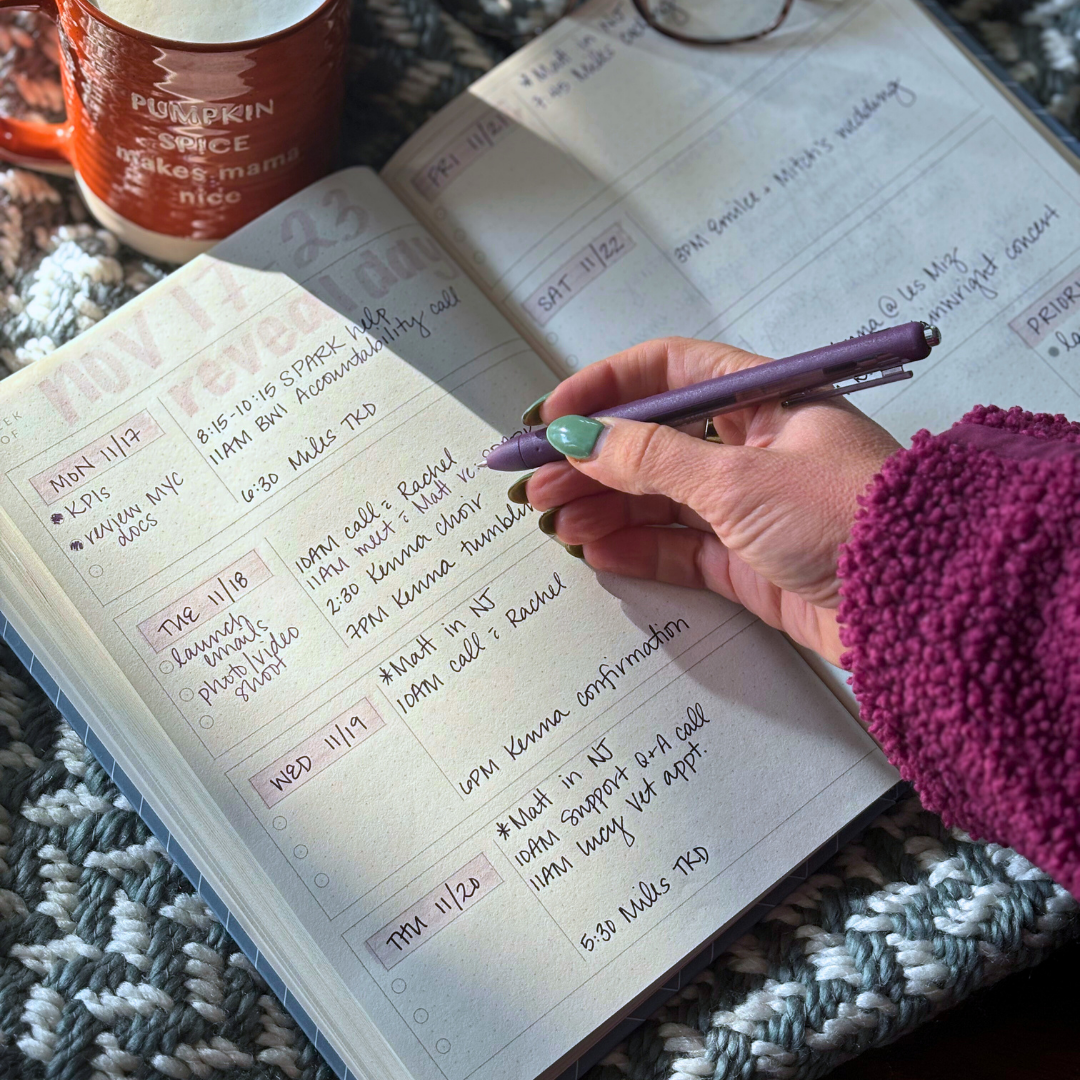 PUMPKIN
SPICE
makes mama
nice
WEEK
OF
nov 17-23
reveal day
MON 11/17
KPIs
review MYC
docs
8:15-10:15 SPARK help
11AM BWI Accountability call
6:30 Miles TKD
TUE 11/18
launch
emails
photo/video
shoot
10AM call Rachel
11AM meet Matt
2:30 Kenna choir
7PM Kenna
WED 11/19
*Matt in NJ
10AM call Rachel
6PM Kenna confirmation
THU 11/20
*Matt in NJ
10AM Support Q+A call
11AM Lucy Vet appt.
5:30 Miles TKD
FRI 11/21
* Matt in NJ
SAT 11/22
3PM Emilee + Mitch's wedding
@ Les Miz
concert